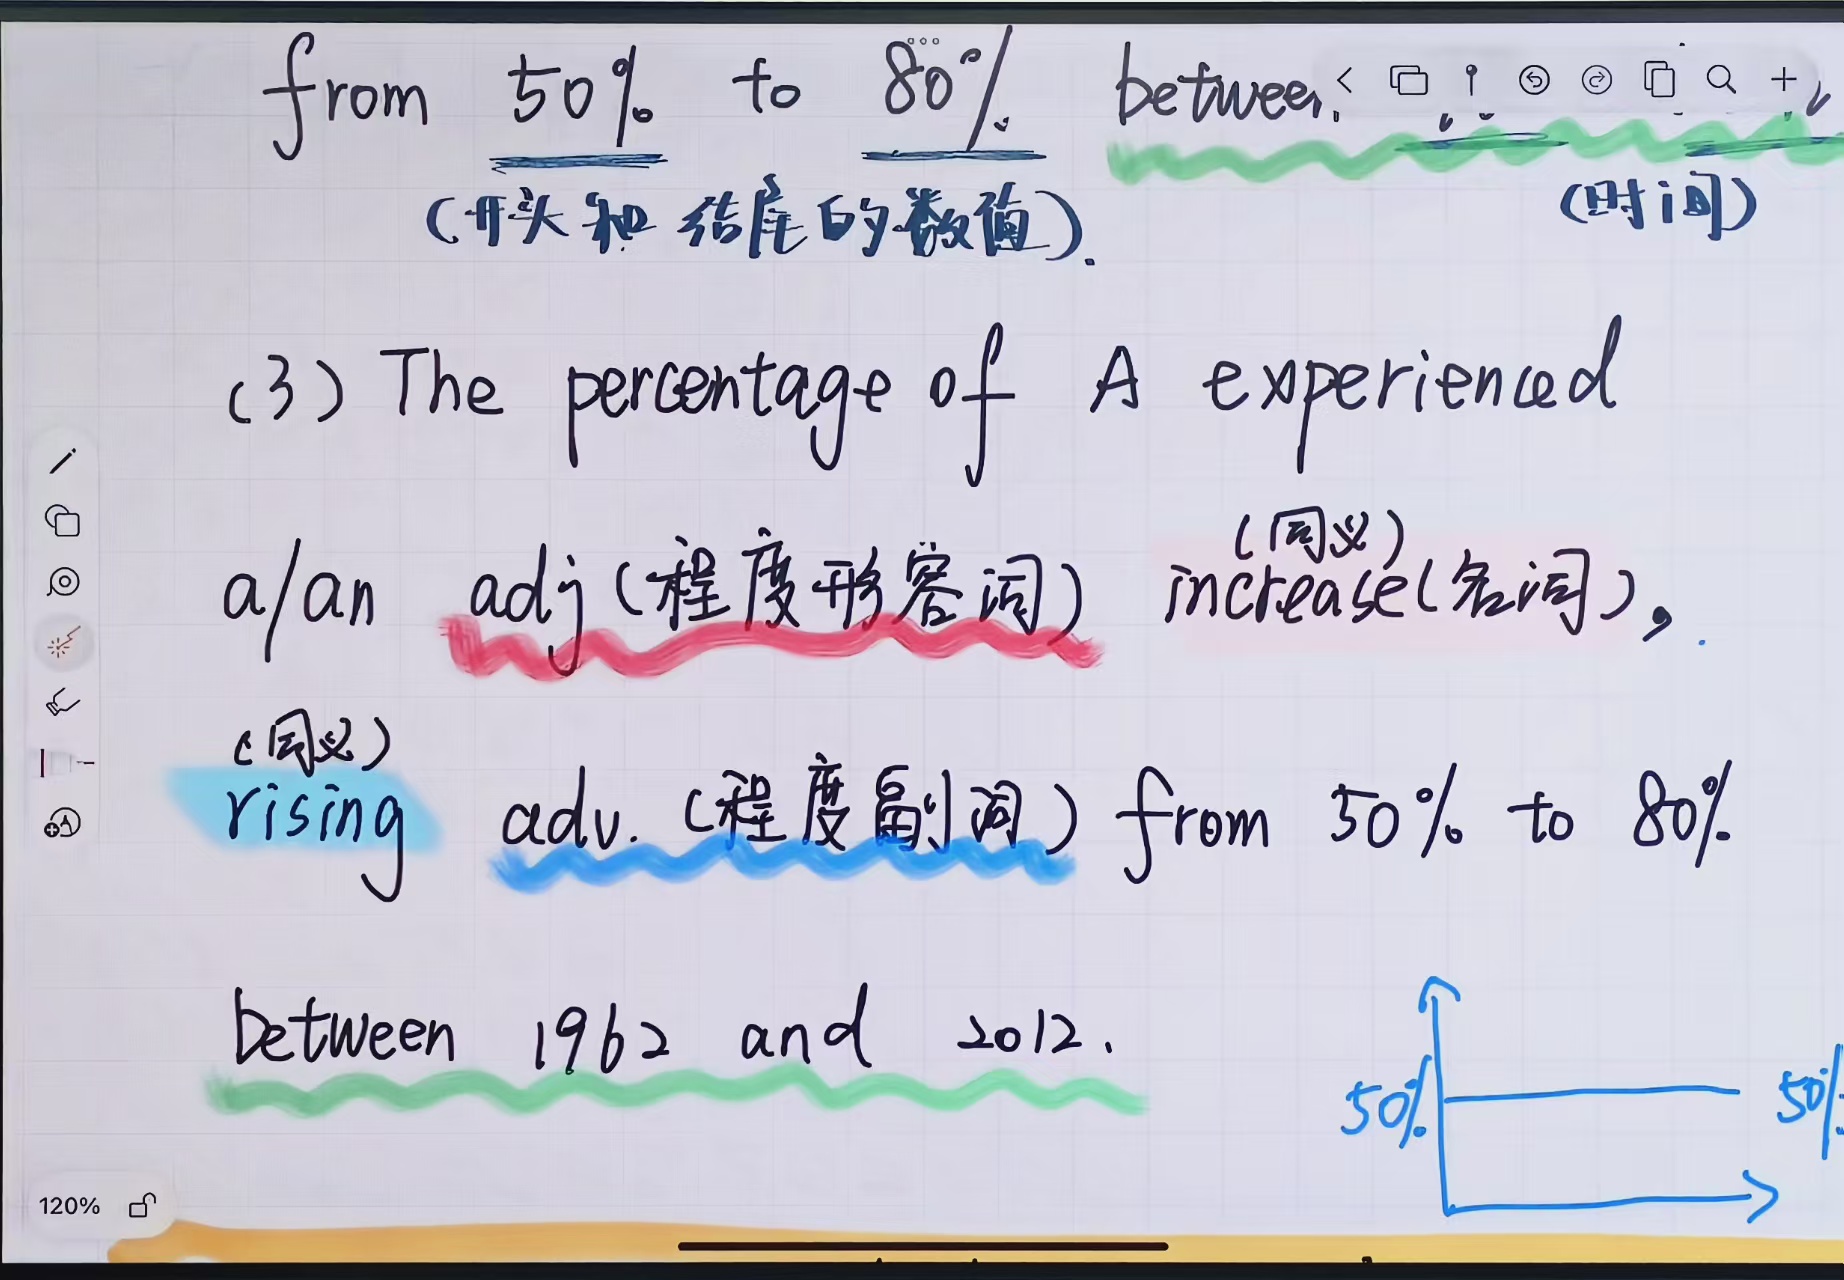 from 50% to 80% between
(开头和结尾的数值).
(时间)
(3) The percentage of A experienced
(同义)
a/an adj(程度形容词) increase(名词),
(同义)
rising adv. (程度副词) from 50% to 80%
between 1962 and 2012.
50%
50%
120%